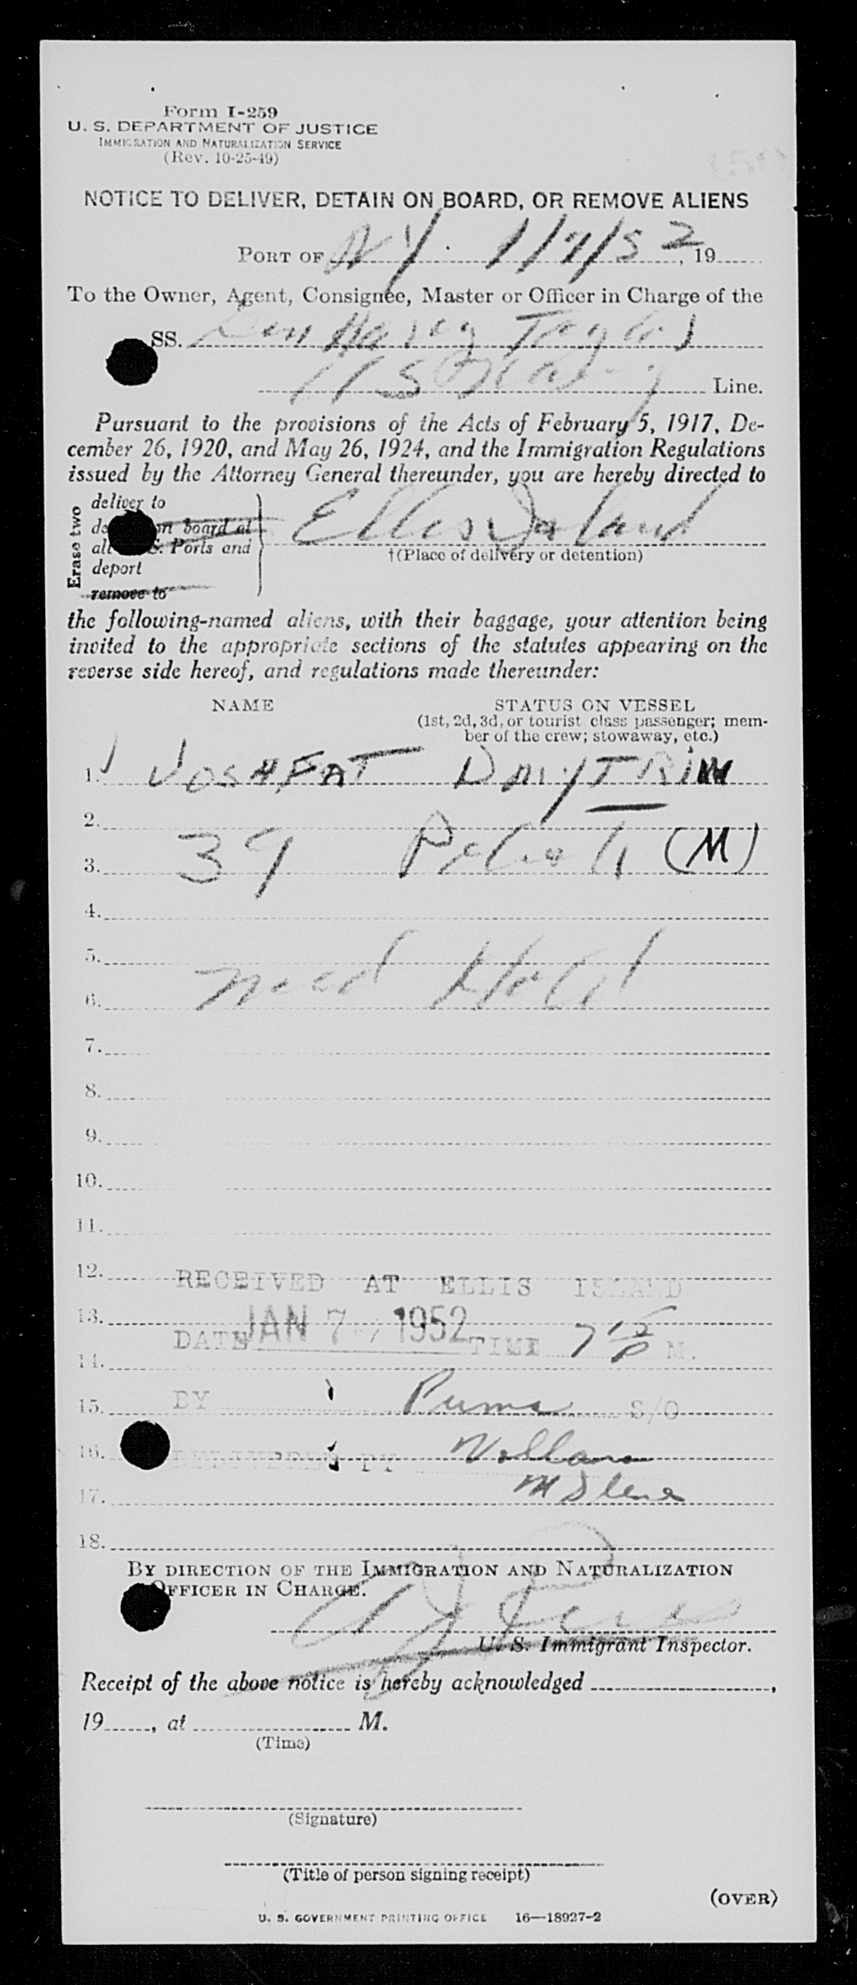 Form I-259
U. S. DEPARTMENT OF JUSTICE
IMMIGRATION AND NATURALIZATION SERVICE
(Rev. 10-25-49)
NOTICE TO DELIVER, DETAIN ON BOARD, OR REMOVE ALIENS
PORT OF NY. 1/7/52, 19
To the Owner, Agent, Consignee, Master or Officer in Charge of the
SS. Gen Harry Taylor
US Line.
Pursuant to the provisions of the Acts of February 5, 1917, De-
cember 26, 1920, and May 26, 1924, and the Immigration Regulations
issued by the Attorney General thereunder, you are hereby directed to
Erase two
deliver to
on board at
Ports and
deport
remove to
Ellis Island
†(Place of delivery or detention)
the following-named aliens, with their baggage, your attention being
invited to the appropriate sections of the statutes appearing on the
reverse side hereof, and regulations made thereunder:
NAME STATUS ON VESSEL
(1st, 2d, 3d, or tourist class passenger; mem-
ber of the crew; stowaway, etc.)
1. JOSAFAT
2.
3. 39 (M)
4.
5.
6. Med Hold
7.
8.
9.
10.
11.
12. RECEIVED AT ELLIS ISLAND
13. DATE JAN 7 1952 TIME 7 15 P M.
14.
15. BY S/O
16. DELIVERED BY
17.
18.
BY DIRECTION OF THE IMMIGRATION AND NATURALIZATION
OFFICER IN CHARGE:
U. S. Immigrant Inspector.
Receipt of the above notice is hereby acknowledged ,
19 , at M.
(Time)
(Signature)
(Title of person signing receipt)
(OVER)
U. S. GOVERNMENT PRINTING OFFICE 16—18927-2